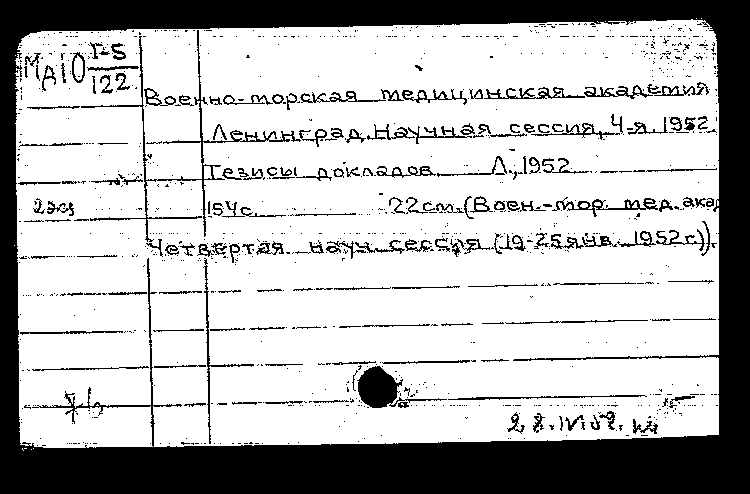 МА10 Г-5
122
Военно-морская медицинская академия
Ленинград. Научная сессия, 4-я. 1952.
Тезисы докладов. Л., 1952
2 экз 154 с. 22 см. (Воен.-мор. мед. акад
Четвертая науч. сессия (19-25 янв. 1952 г.)).
28.IV.52.